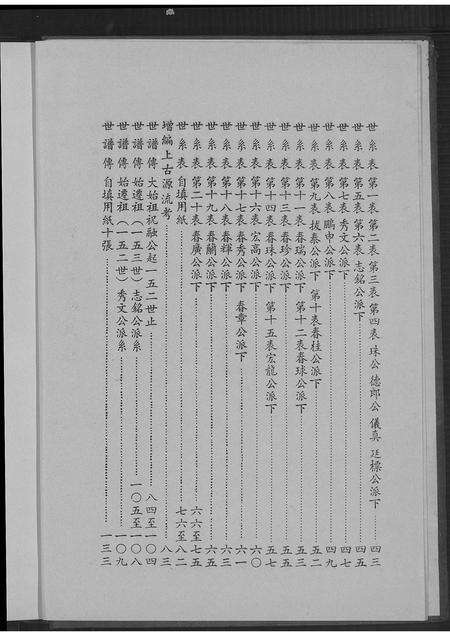 世系表 第一表 第二表 第三表 第四表 珠公 德郎公 儀真 廷標公派下 四三
世系表 第五表 第六表 志銘公派下 四五
世系表 第七表 秀文公派下 四七
世系表 第八表 鵬申公派下 四九
世系表 第九表 拔泰公派下 第十表春桂公派下 五二
世系表 第十一表 春瑞公派下 第十二表春球公派下 五三
世系表 第十三表 春珍公派下 五五
世系表 第十四表 春珠公派下 第十五表宏龍公派下 五七
世系表 第十六表 宏高公派下 六〇
世系表 第十七表 春秀公派下 春章公派下 六一
世系表 第十八表 春輝公派下 六三
世系表 第十九表 春蘭公派下 六五
世系表 第二十表 春廣公派下 六六至七五
世系表 自填用紙 七六至八二
增編上古源流考 八三
世譜傳 大始祖祝融公起一五二世止 八四至一〇四
世譜傳 始遷祖(一五三世)志銘公派系 一〇五至一〇八
世譜傳 始遷祖(一五二世)秀文公派系 一〇九
世譜傳 自填用紙十張 一三三